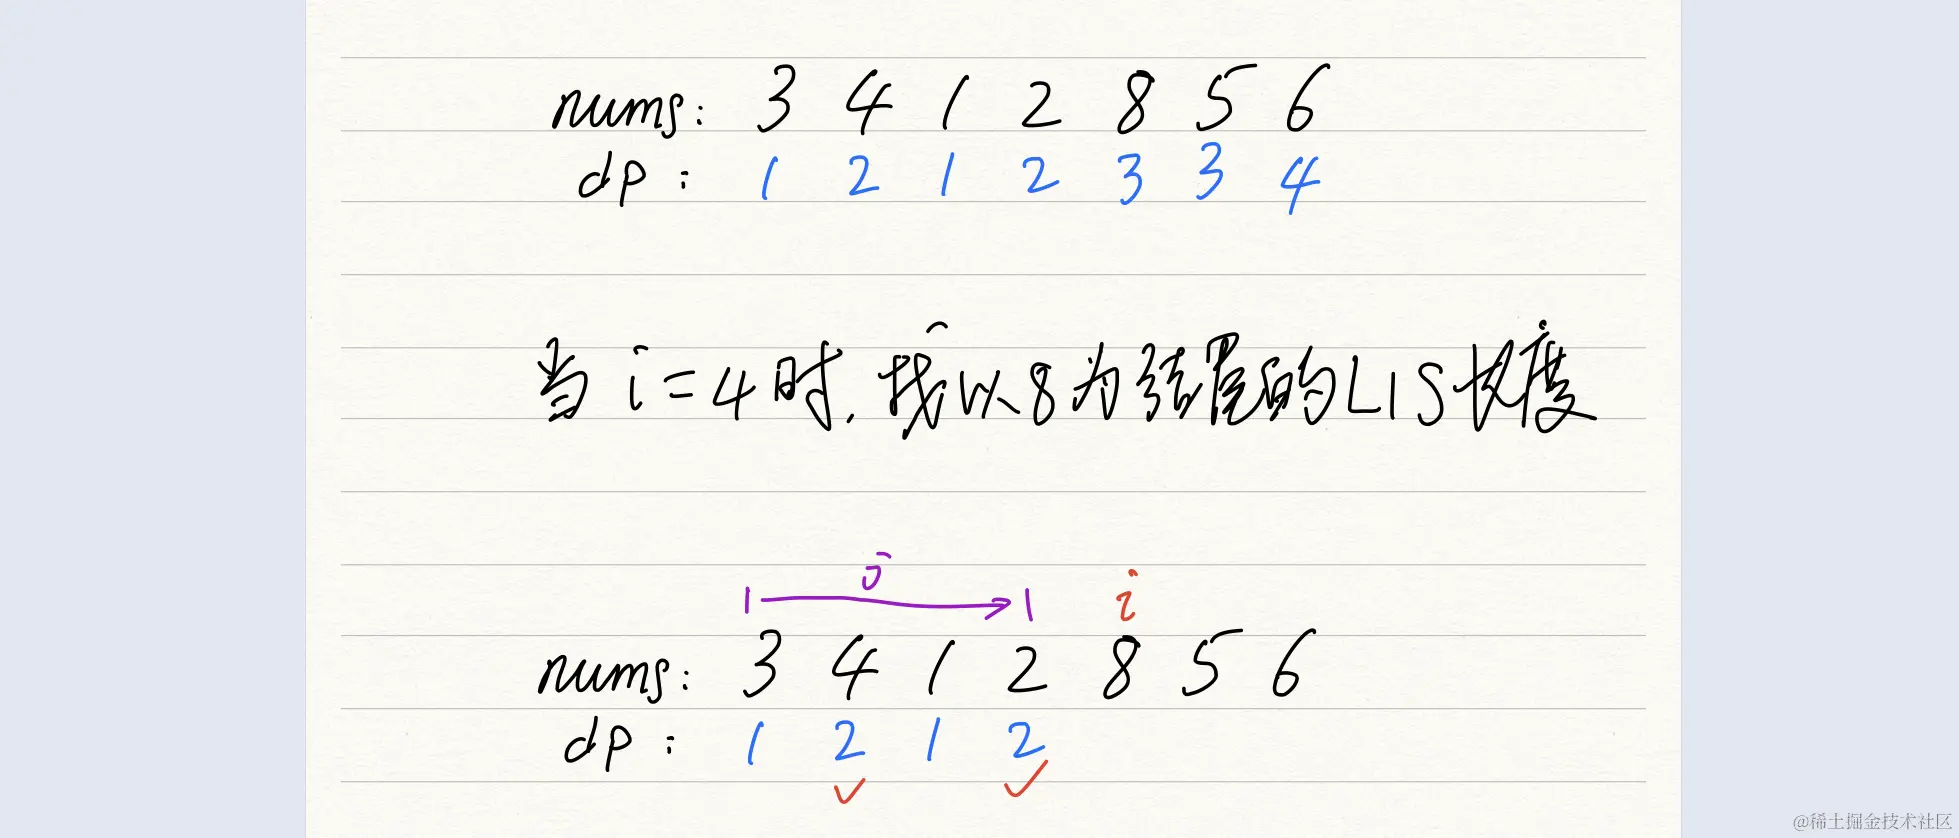 nums: 3 4 1 2 8 5 6
dp: 1 2 1 2 3 3 4
当 i=4时,找以8为结尾的LIS长度
j i
nums: 3 4 1 2 8 5 6
dp: 1 2 1 2
@稀土掘金技术社区